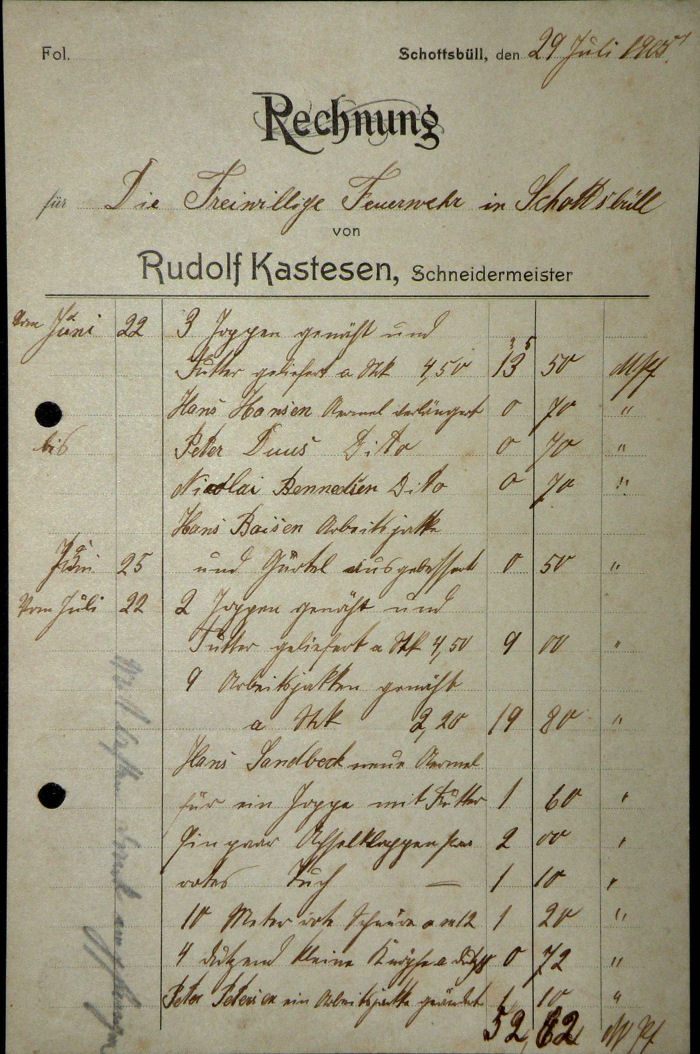 Fol. Schottsbüll, den 29 Juli 1905.
Rechnung
für Die Freiwillige Feuerwehr in Schottsbüll
von
Rudolf Kastesen, Schneidermeister
Vom Juni 22 3 Joppen genäht und
Futter geliefert a Stk 4,50 13 50 M Pf
Hans Hansen Aermel verlängert 0 70 "
bis Peter Duus Dito 0 70 "
Nicolai Bennedsen Dito 0 70 "
Hans Boisen Arbeitsjakke
Juni 25 und Gürtel ausgebessert 0 50 "
Vom Juli 22 2 Joppen genäht und
Futter geliefert a Stk 4,50 9 00 "
9 Arbeitsjakken genäht
a Stk 2,20 19 80 "
Hans Sandbeck neue Aermel
für ein Joppe mit Futter 1 60 "
Ein paar Achselklappen 2 00 "
rotes Tuch — 1 10 "
10 Meter rote Schnüre a M 12 1 20 "
4 dutzend kleine Knöpfe a 0 72 "
Peter Petersen ein Arbeitsjakke geändert 1 10 "
52,62 M Pf